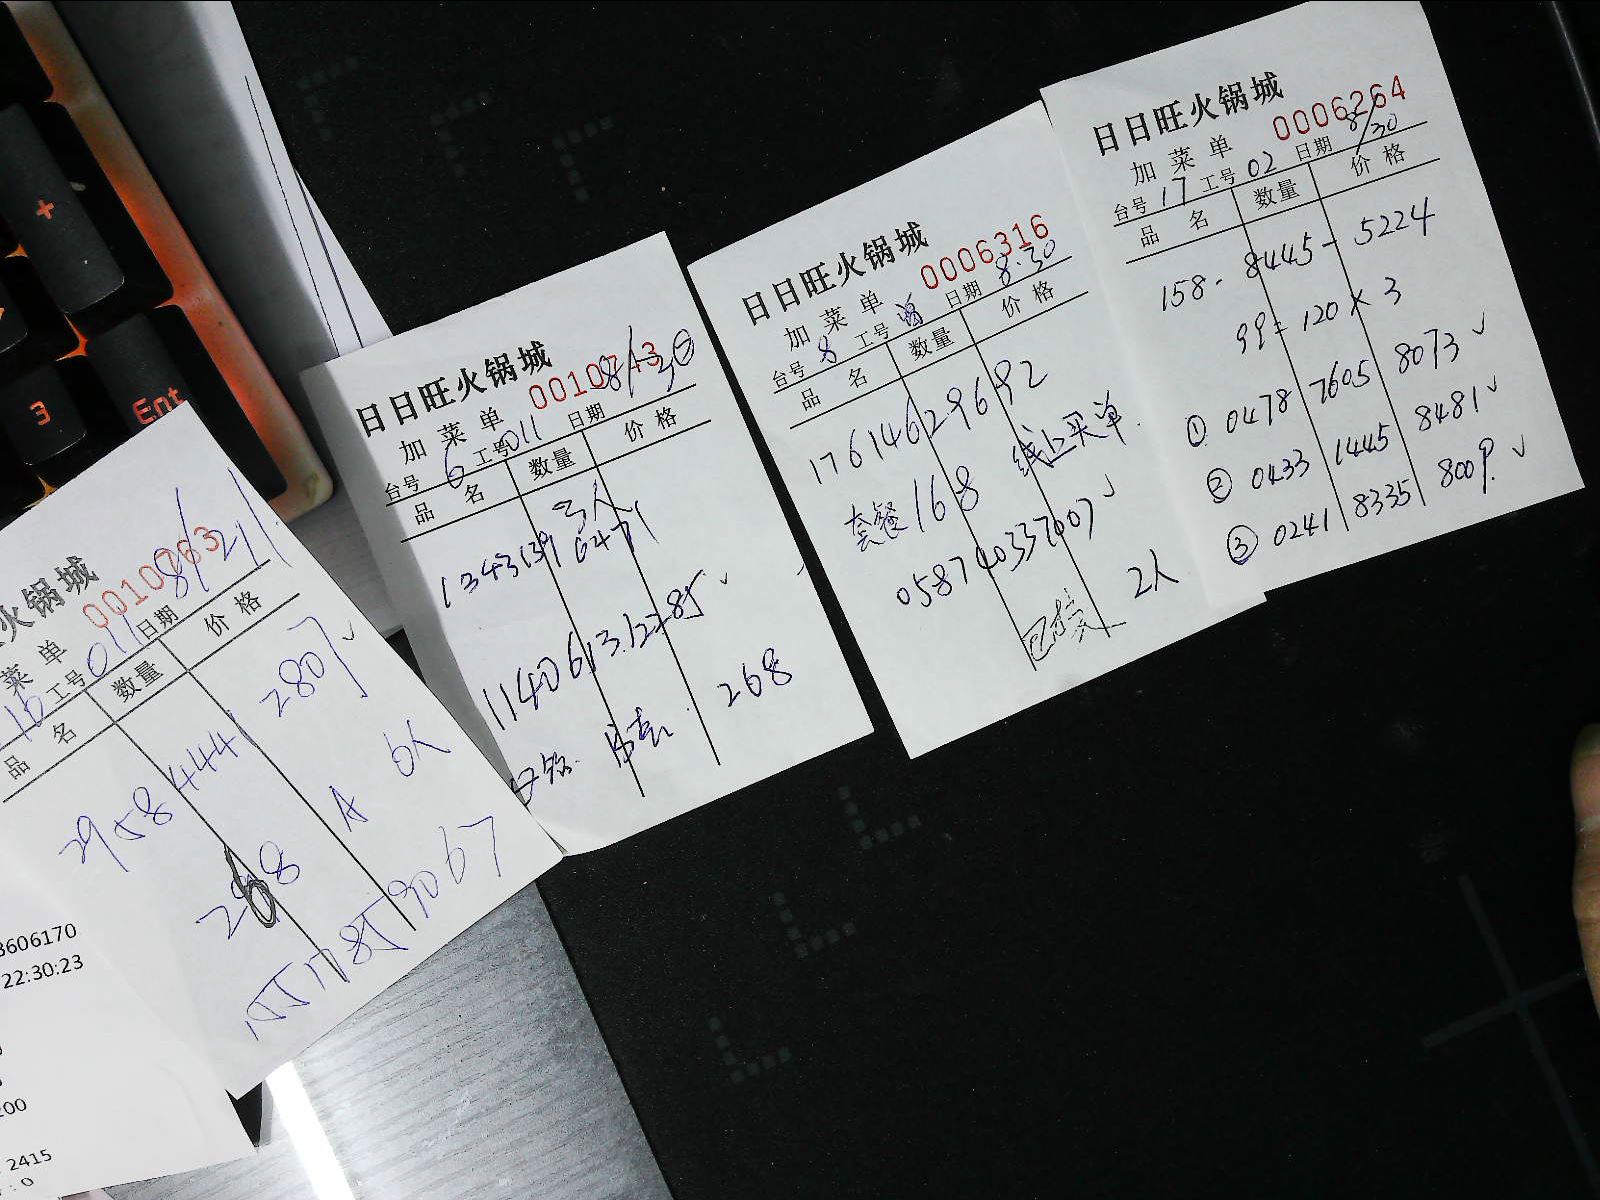 +
3
Ent
火锅城
0010763
8/211
菜单
16 工号 011 日期
品 名 数量 价格
2958 4441 2807 ✓
268 A 6人
551785 9067
3606170
22:30:23
200
2415
: 0
日日旺火锅城
0010743
加菜单
台号 6 工号 011 日期 8/30
品 名 数量 价格
3人
1343139 6471
1140613.12285 ✓
268
日日旺火锅城
0006316
加菜单
台号 8 工号 日期 8.30
品 名 数量 价格
17614629692
套餐168 线上买单.
058740337007 ✓
2人
日日旺火锅城
0006264
加菜单
台号 17 工号 02 日期 8/30
品 名 数量 价格
158-8445-5224
99=120×3
① 0478 7605 8073 ✓
② 0433 1445 8481 ✓
③ 0241 8335 8009. ✓